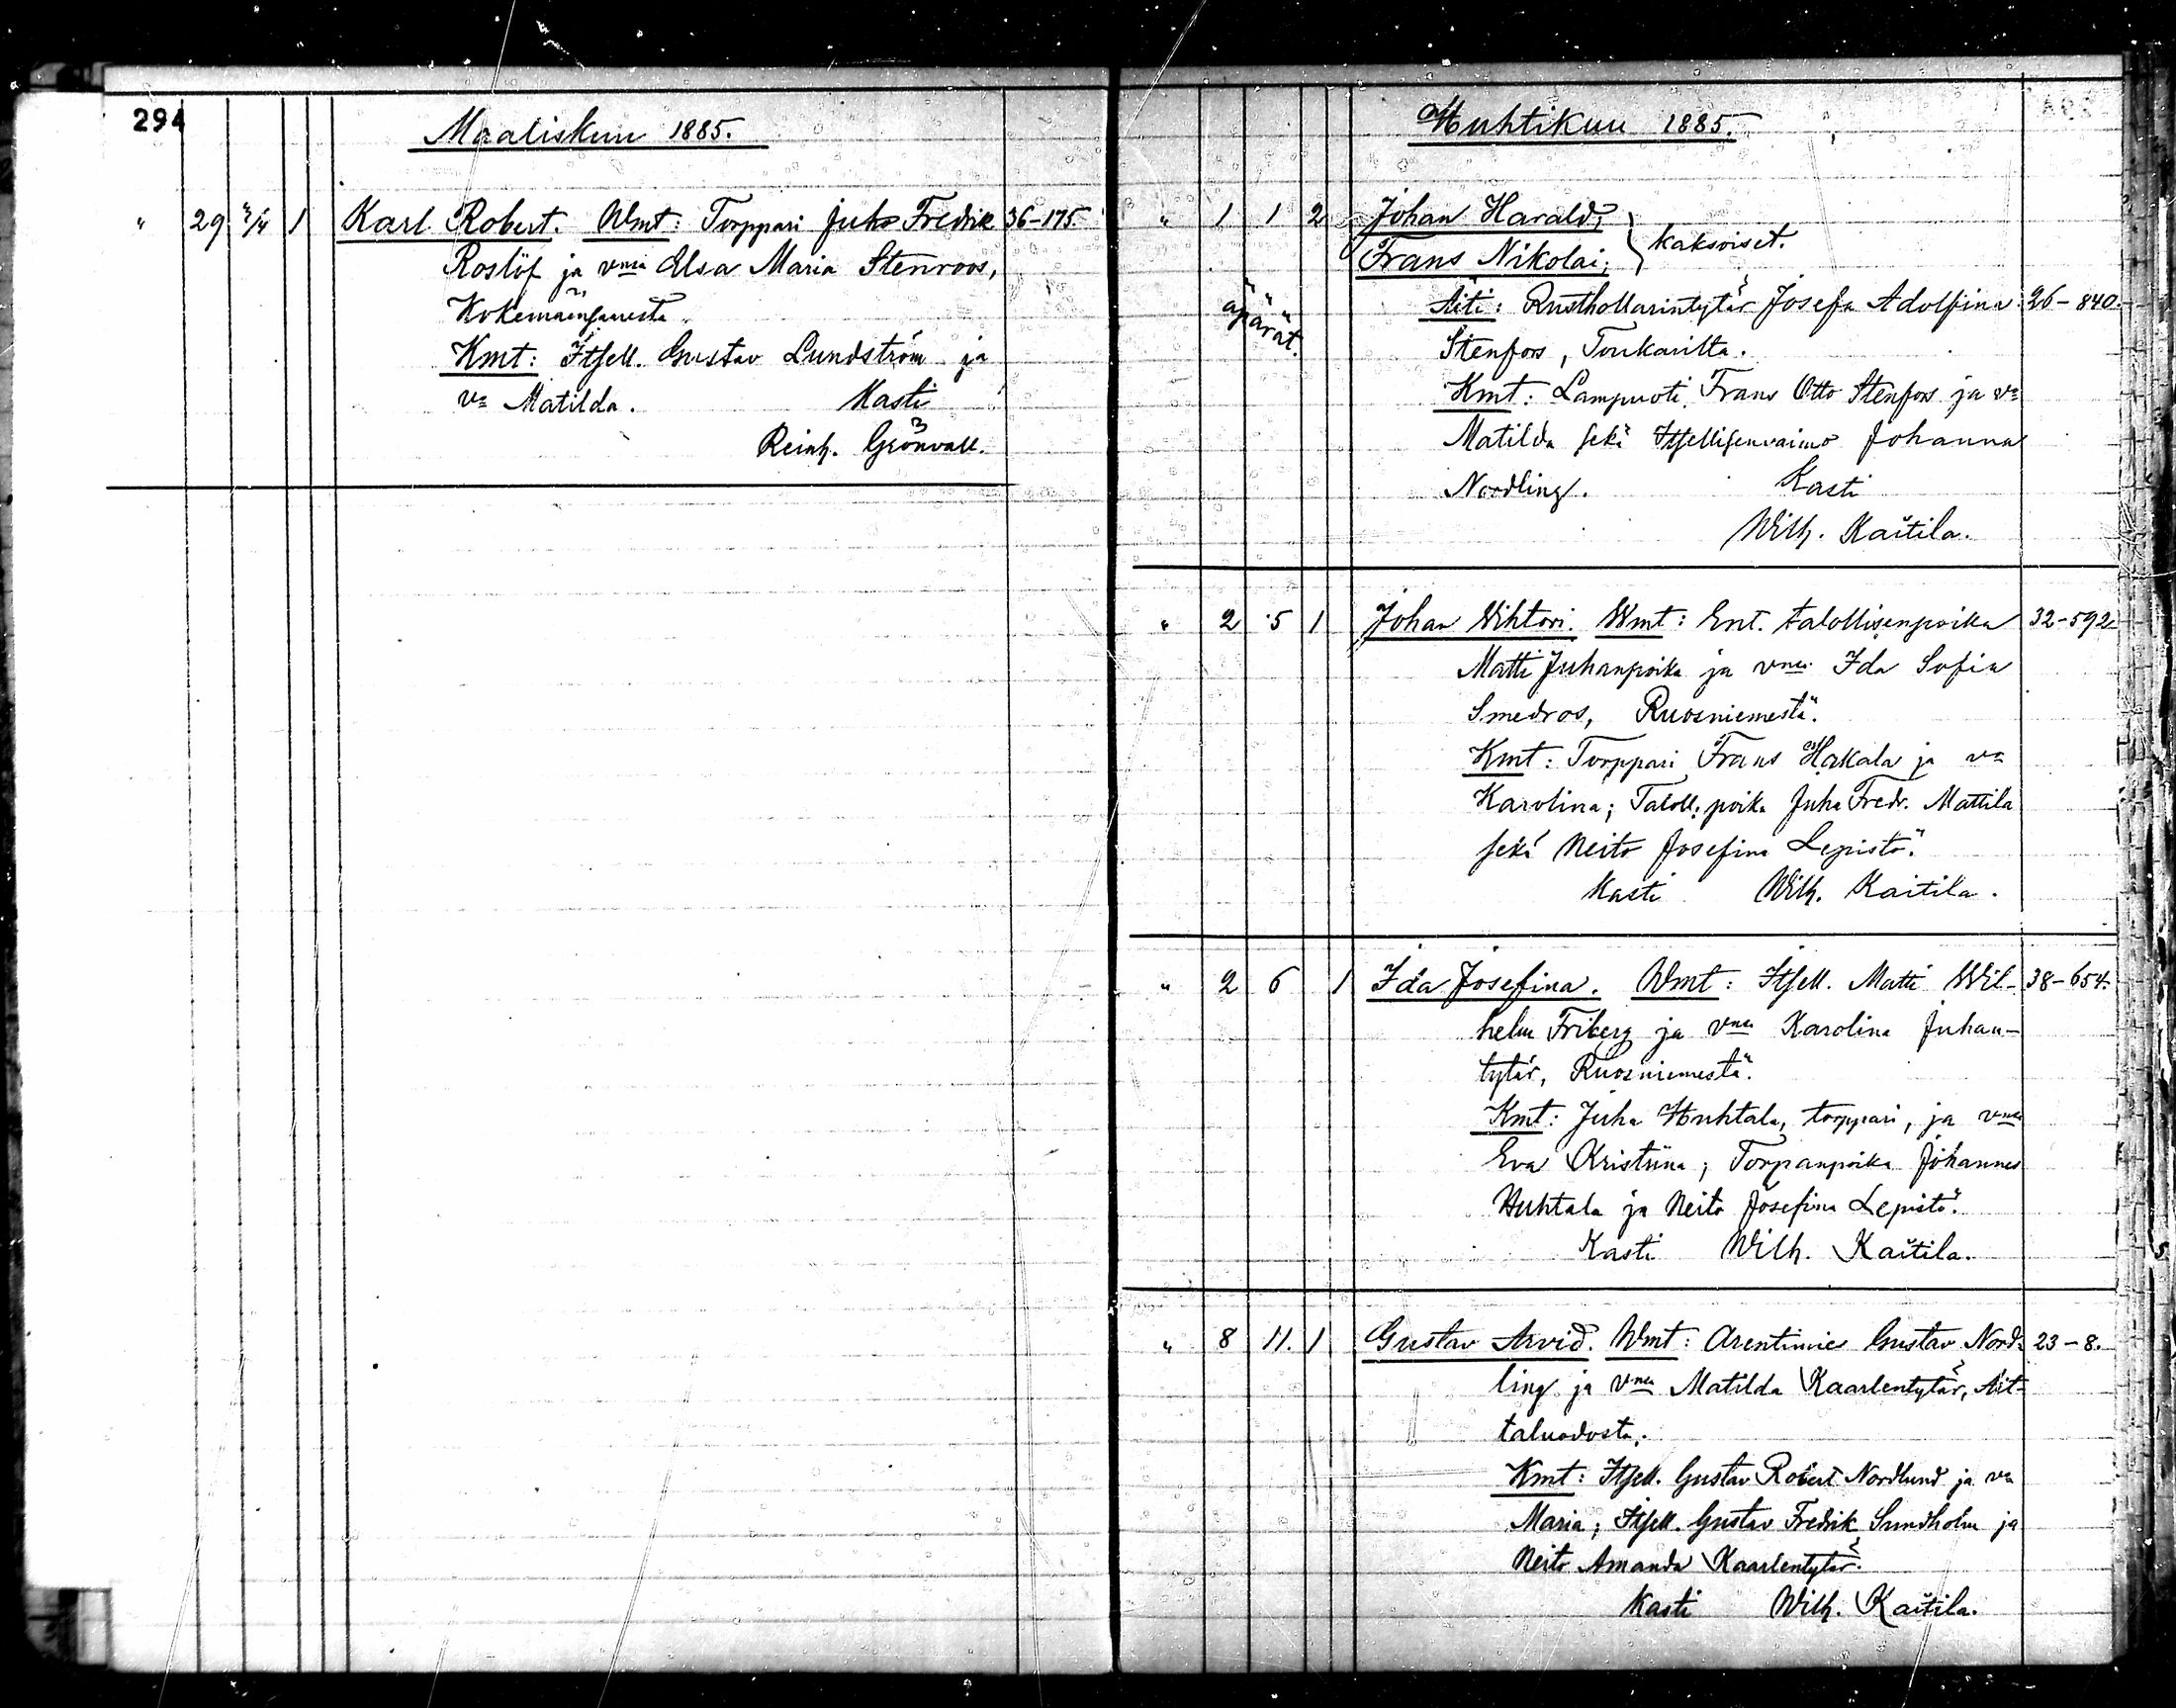 294
Maaliskuu 1885.
" 29 3/4 1 Karl Robert. Wmt: Torppari Juho Fredrik 36-175.
Roslöf ja vmsa Elsa Maria Stenroos,
Kokemäensaaresta.
Kmt: Itsell. Gustav Lundström ja
va Matilda. Kasti
Reinh. Grönvall.
Huhtikuu 1885.
" 1 1 2 Johan Harald,
Frans Nikolai; } kaksoiset.
äpärät.
Äiti: Rusthollarintytär Josefa Adolfina 26-840.
Stenfors, Toukarilta.
Kmt: Lampuoti Frans Otto Stenfors ja va
Matilda sekä Itsellisenvaimo Johanna
Nordling. Kasti
Wilh. Kaitila.
" 2 5 1 Johan Wihtori. Wmt: Ent. talollisenpoika 32-592
Matti Juhanpoika ja vmsa Ida Sofia
Smedros, Ruosniemestä.
Kmt: Torppari Frans Hakala ja va
Karolina; Taloll. poika Juha Fredr. Mattila
sekä Neito Josefina Lepistö.
Kasti Wilh. Kaitila.
" 2 6 1 Ida Josefina. Wmt: Itsell. Matti Wil- 38-654.
helm Friberg ja vmsa Karolina Juhan-
tytär, Ruosniemestä.
Kmt: Juha Huhtala, torppari, ja vmsa
Eva Kristiina; Torpanpoika Johannes
Huhtala ja Neito Josefina Lepistö.
Kasti Wilh. Kaitila.
" 8 11. 1 Gustav Arvid. Wmt: Arentimies Gustav Nord- 23-8.
ling ja vmsa Matilda Kaarlentytär, Ait-
taluodosta.
Kmt: Itsell. Gustav Robert Nordlund ja va
Maria; Itsell. Gustav Fredrik Sundholm ja
Neito Amanda Kaarlentytär.
Kasti Wilh. Kaitila.